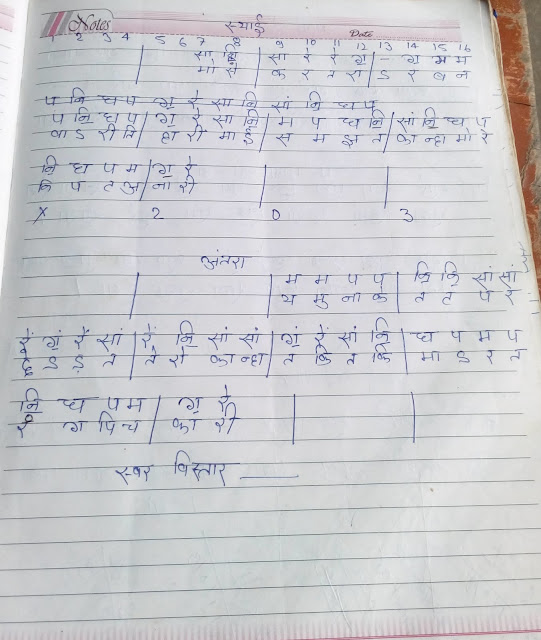 Notes
स्थाई
Date
1 2 3 4 5 6 7 8 9 10 11 12 13 14 15 16
सां नि॒ | सा रे रे ग॒ | - ग॒ म म
मो से | क र त रा | ऽ र ब न
प नि ध प ग॒ रे सा नि सां नि ध प
प नि॒ ध प | ग॒ रे सा नि॒ | म प ध नि॒ | सां नि॒ ध प
वा ऽ री ति | हा री मा ई | स म झ त | का न्हा मो रे
नि॒ ध प म | ग॒ रे
कि प ट अ | ना री
X 2 0 3
अंतरा
म म प प | नि॒ नि॒ सां सां
य मु ना के | त ट प र
रें गं॒ रें सां | रें नि॒ सां सां | गं॒ रें सां नि॒ | ध प म प
ऽ ड़ त | ते रो का न्हा | त कि त कि | मा ऽ र त
नि॒ ध प म | ग॒ रे
रं ग पि च | का री
स्वर विस्तार ____